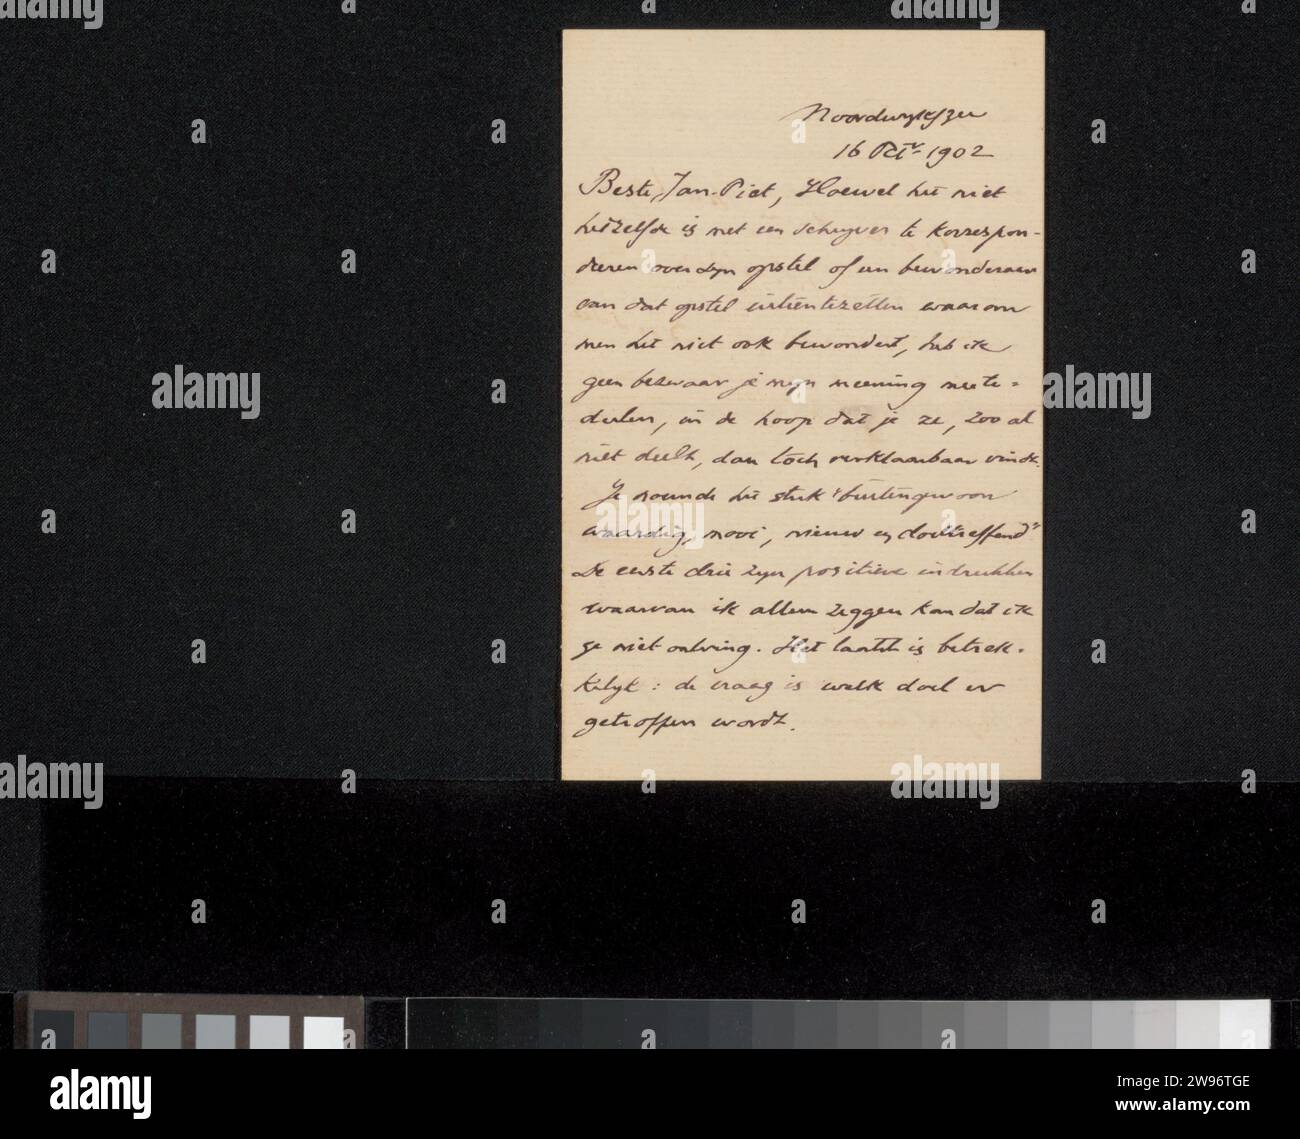 Noordwijk/zee
16 Oct.r 1902
Beste Jan-Piet, Hoewel het niet
hetzelfde is met een schrijver te korrespon-
deeren over zijn opstel of een bewonderaar
van dat opstel uiteentezetten waarom
men het niet ook bewondert, heb ik
geen bezwaar je mijn meening mete-
deelen, in de hoop dat je ze, zoo al
niet deelt, dan toch verklaarbaar vindt.
Je noemde het stuk "buitengewoon
waardig, mooi, nieuw en doeltreffend"
De eerste drie zijn positieve indrukken
waarvan ik alleen zeggen kan dat ik
ze niet ontving. Het laatste is betrek-
kelijk: de vraag is welk doel er
getroffen wordt.
alamy
Image ID: 2W96TGE
www.alamy.com